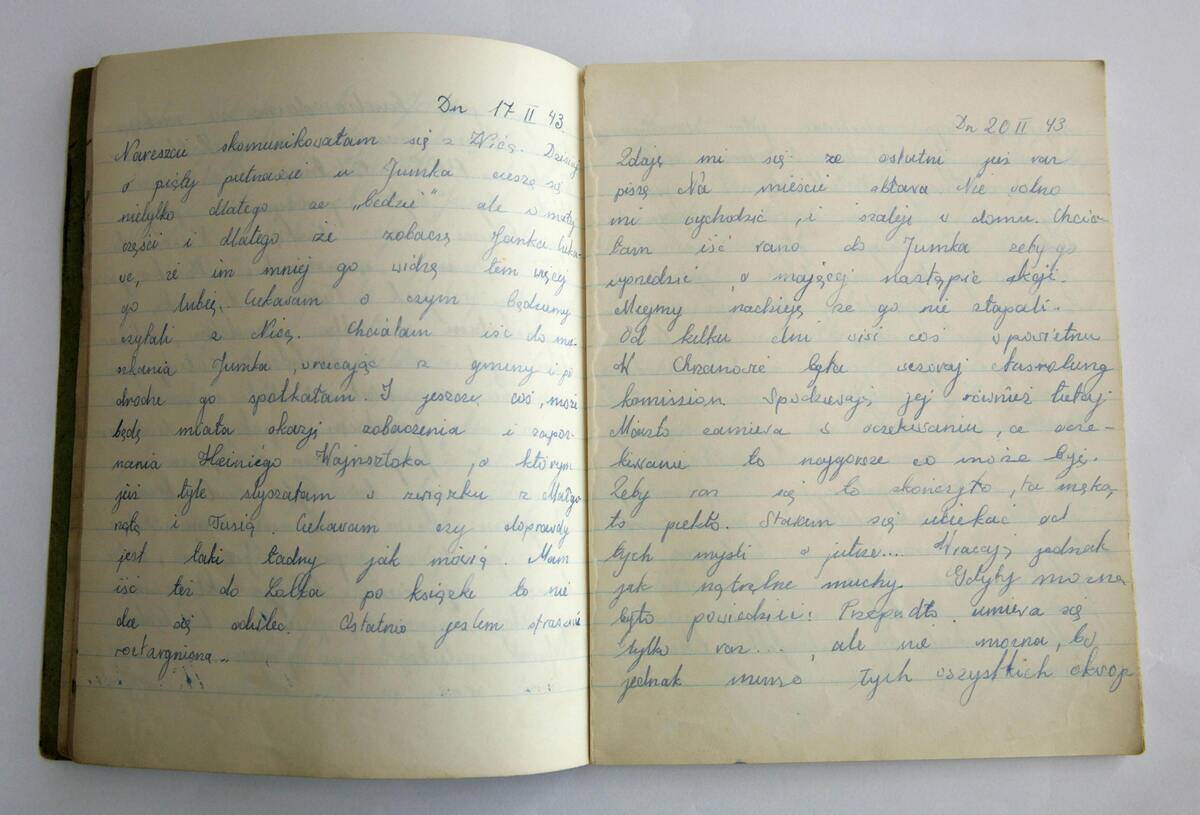 Dn 17 II 43.
Nareszcie skomunikowałam się z Nicą. Dzisiaj
o piątej piętnaście u Jumka cieszę się
nietylko dlatego że „będzie" ale w małej
części i dlatego że zobaczę Janka. Cieka-
we, że im mniej go widzę tem więcej
go lubię. Ciekawam o czym będziemy
czytali z Nicą. Chciałam iść do mie-
szkania Jumka, wracając z gminy i po
drodze go spotkałam. I jeszcze coś, może
będę miała okazję zobaczenia i zapoz-
nania Heiniego Wajnsztoka, o którym
już tyle słyszałam w związku z Małgo
rzatą i Tusią. Ciekawam czy doprawdy
jest taki ładny jak mówią. Mam
iść też do po książki to nie
da się odwlec. Ostatnio jestem strasznie
roztargniona..
Dn 20 II 43
Zdaję mi się że ostatni już raz
piszę. Na mieście obława. Nie wolno
mi wychodzić, i szaleję w domu. Chcia
łam iść rano do Jumka żeby go
uprzedzić, o mającej nastąpić akcji.
Miejmy nadzieję że go nie złapali.
Od kilku dni wisi coś w powietrzu
W Chrzanowie była wczoraj Aussiedlung
komission. Spodziewają jej również tutaj
Miasto zamiera w oczekiwaniu, a ocze-
kiwaniu to najgorsze co może być.
Żeby raz się to skończyło, ta męka,
to piekło. Staram się uciekać od
tych myśli o jutrze.... Wracają jednak
jak natrętne muchy. Gdybyż można
było powiedzieć: Przepadło umiera się
tylko raz...., ale nie można, bo
jednak mimo tych wszystkich okrop